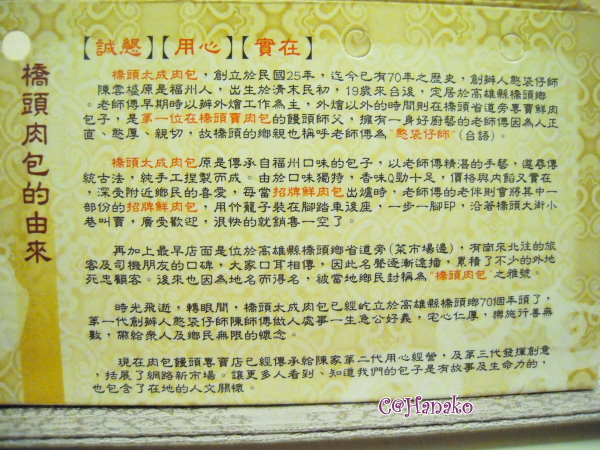 橋頭肉包的由來
【誠懇】【用心】【實在】
橋頭太成肉包，創立於民國25年，迄今已有70年之歷史，創辦人憨袋仔師
陳雲檯原是福州人，出生於清末民初，19歲來台後，定居於高雄縣橋頭鄉
。老師傅早期時以辦外燴工作為主，外燴以外的時間則在橋頭省道旁專賣鮮肉
包子，是第一位在橋頭賣肉包的饅頭師父，擁有一身好廚藝的老師傅因為人正
直、憨厚、親切，故橋頭的鄉親也稱呼老師傅為"憨袋仔師"(台語)。
橋頭太成肉包原是傳承自福州口味的包子，以老師傅精湛的手藝，遵尋傳
統古法，純手工捏製而成。由於口味獨特，香味Q勁十足，價格與內餡又實在
，深受附近鄉民的喜愛，每當招牌鮮肉包出爐時，老師傅的老伴則會將其中一
部份的招牌鮮肉包，用竹籠子裝在腳踏車後座，一步一腳印，沿著橋頭大街小
巷叫賣，廣受歡迎，很快的就銷售一空了。
再加上最早店面是位於高雄縣橋頭鄉省道旁(菜市場邊)，有南來北往的旅
客及司機朋友的口碑，大家口耳相傳，因此名聲逐漸遠播，累積了不少的外地
死忠顧客。後來也因為地名而得名，被當地鄉民封稱為"橋頭肉包"之雅號。
時光飛逝，轉眼間，橋頭太成肉包已經屹立於高雄縣橋頭鄉70個年頭了，
第一代創辦人憨袋仔師陳師傅做人處事一生急公好義，宅心仁厚，樂施行善無
數，帶給眾人及鄉民無限的懷念。
現在肉包饅頭專賣店已經傳承給陳家第二代用心經營，及第三代發揮創意
，括展了網路新市場。讓更多人看到、知道我們的包子是有故事及生命力的，
也包含了在地的人文關懷。
C@Hanako